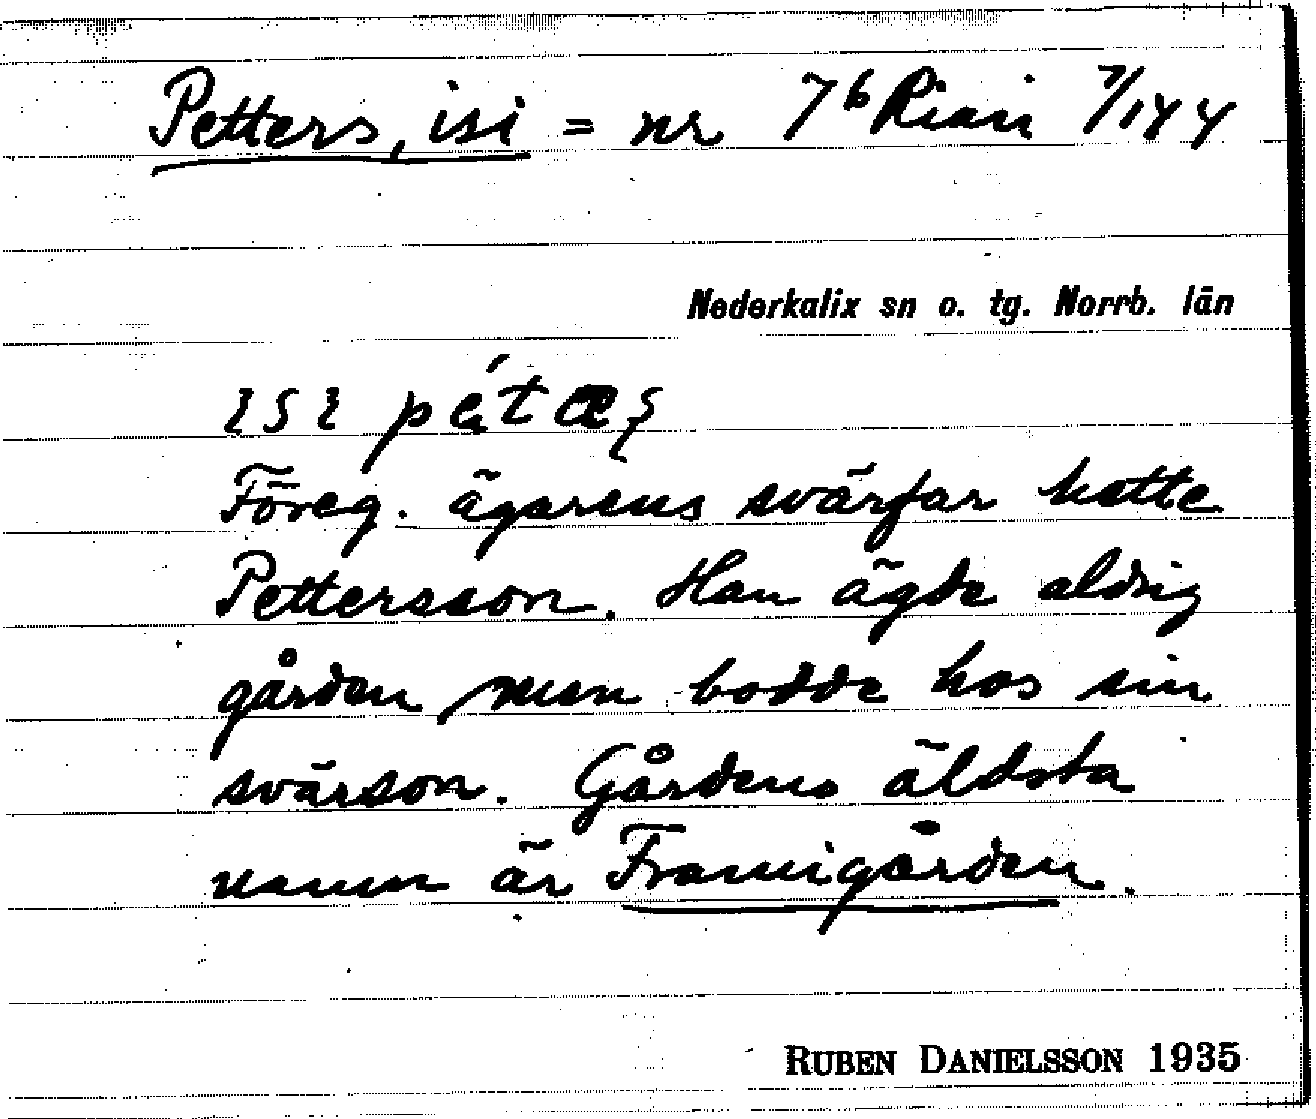 Petters, isi = nr 7b Rian 7/144
Nederkalix sn o. tg. Norrb. län
ısı
Föreg. ägarens svärfar hette
Pettersson. Han ägde aldrig
gården men bodde hos sin
svärson. Gårdens äldsta
namn är Framigården.
RUBEN DANIELSSON 1935